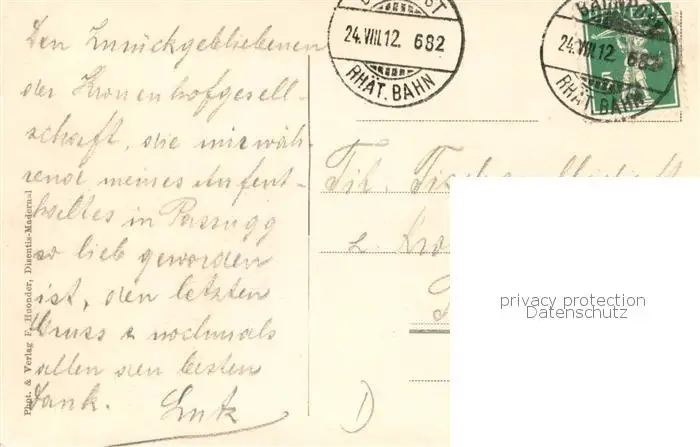 Den Zurückgebliebenen
der Kronenhofgesell-
schaft, die mir wäh-
rend meines Aufent-
haltes in Passugg
so lieb geworden
ist, den letzten
Gruss & nochmals
allen den besten
Dank. Lutz
Phot. & Verlag F. Huonder, Disentis-Maderanal
24.VIII.12 682
RHÄT. BAHN
BAHNPOST
24.VIII.12 682
RHÄT. BAHN
5
Frl.
z.
privacy protection
Datenschutz